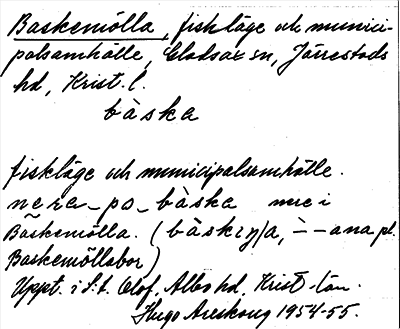 Baskemölla, fiskläge och munici-
palsamhälle, Gladsax sn, Järrestads
hd, Krist. l.
bàska
fiskläge och municipalsamhälle.
nera_po_bàska nere i
Baskemölla. (bàska, -ana pl.
Baskemöllabor)
Uppt. i S:t Olof, Albo hd, Krist. län.
Hugo Areskoug 1954-55.